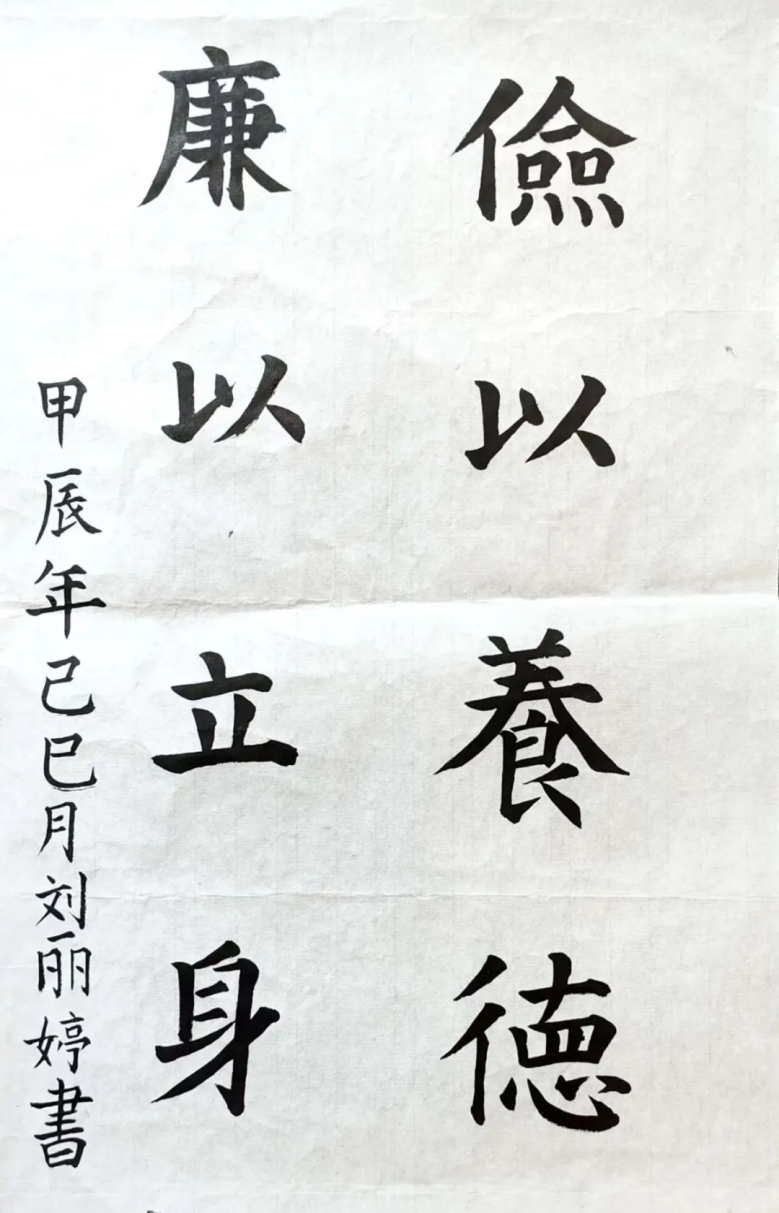 儉以養德
廉以立身
甲辰年己巳月刘丽婷書